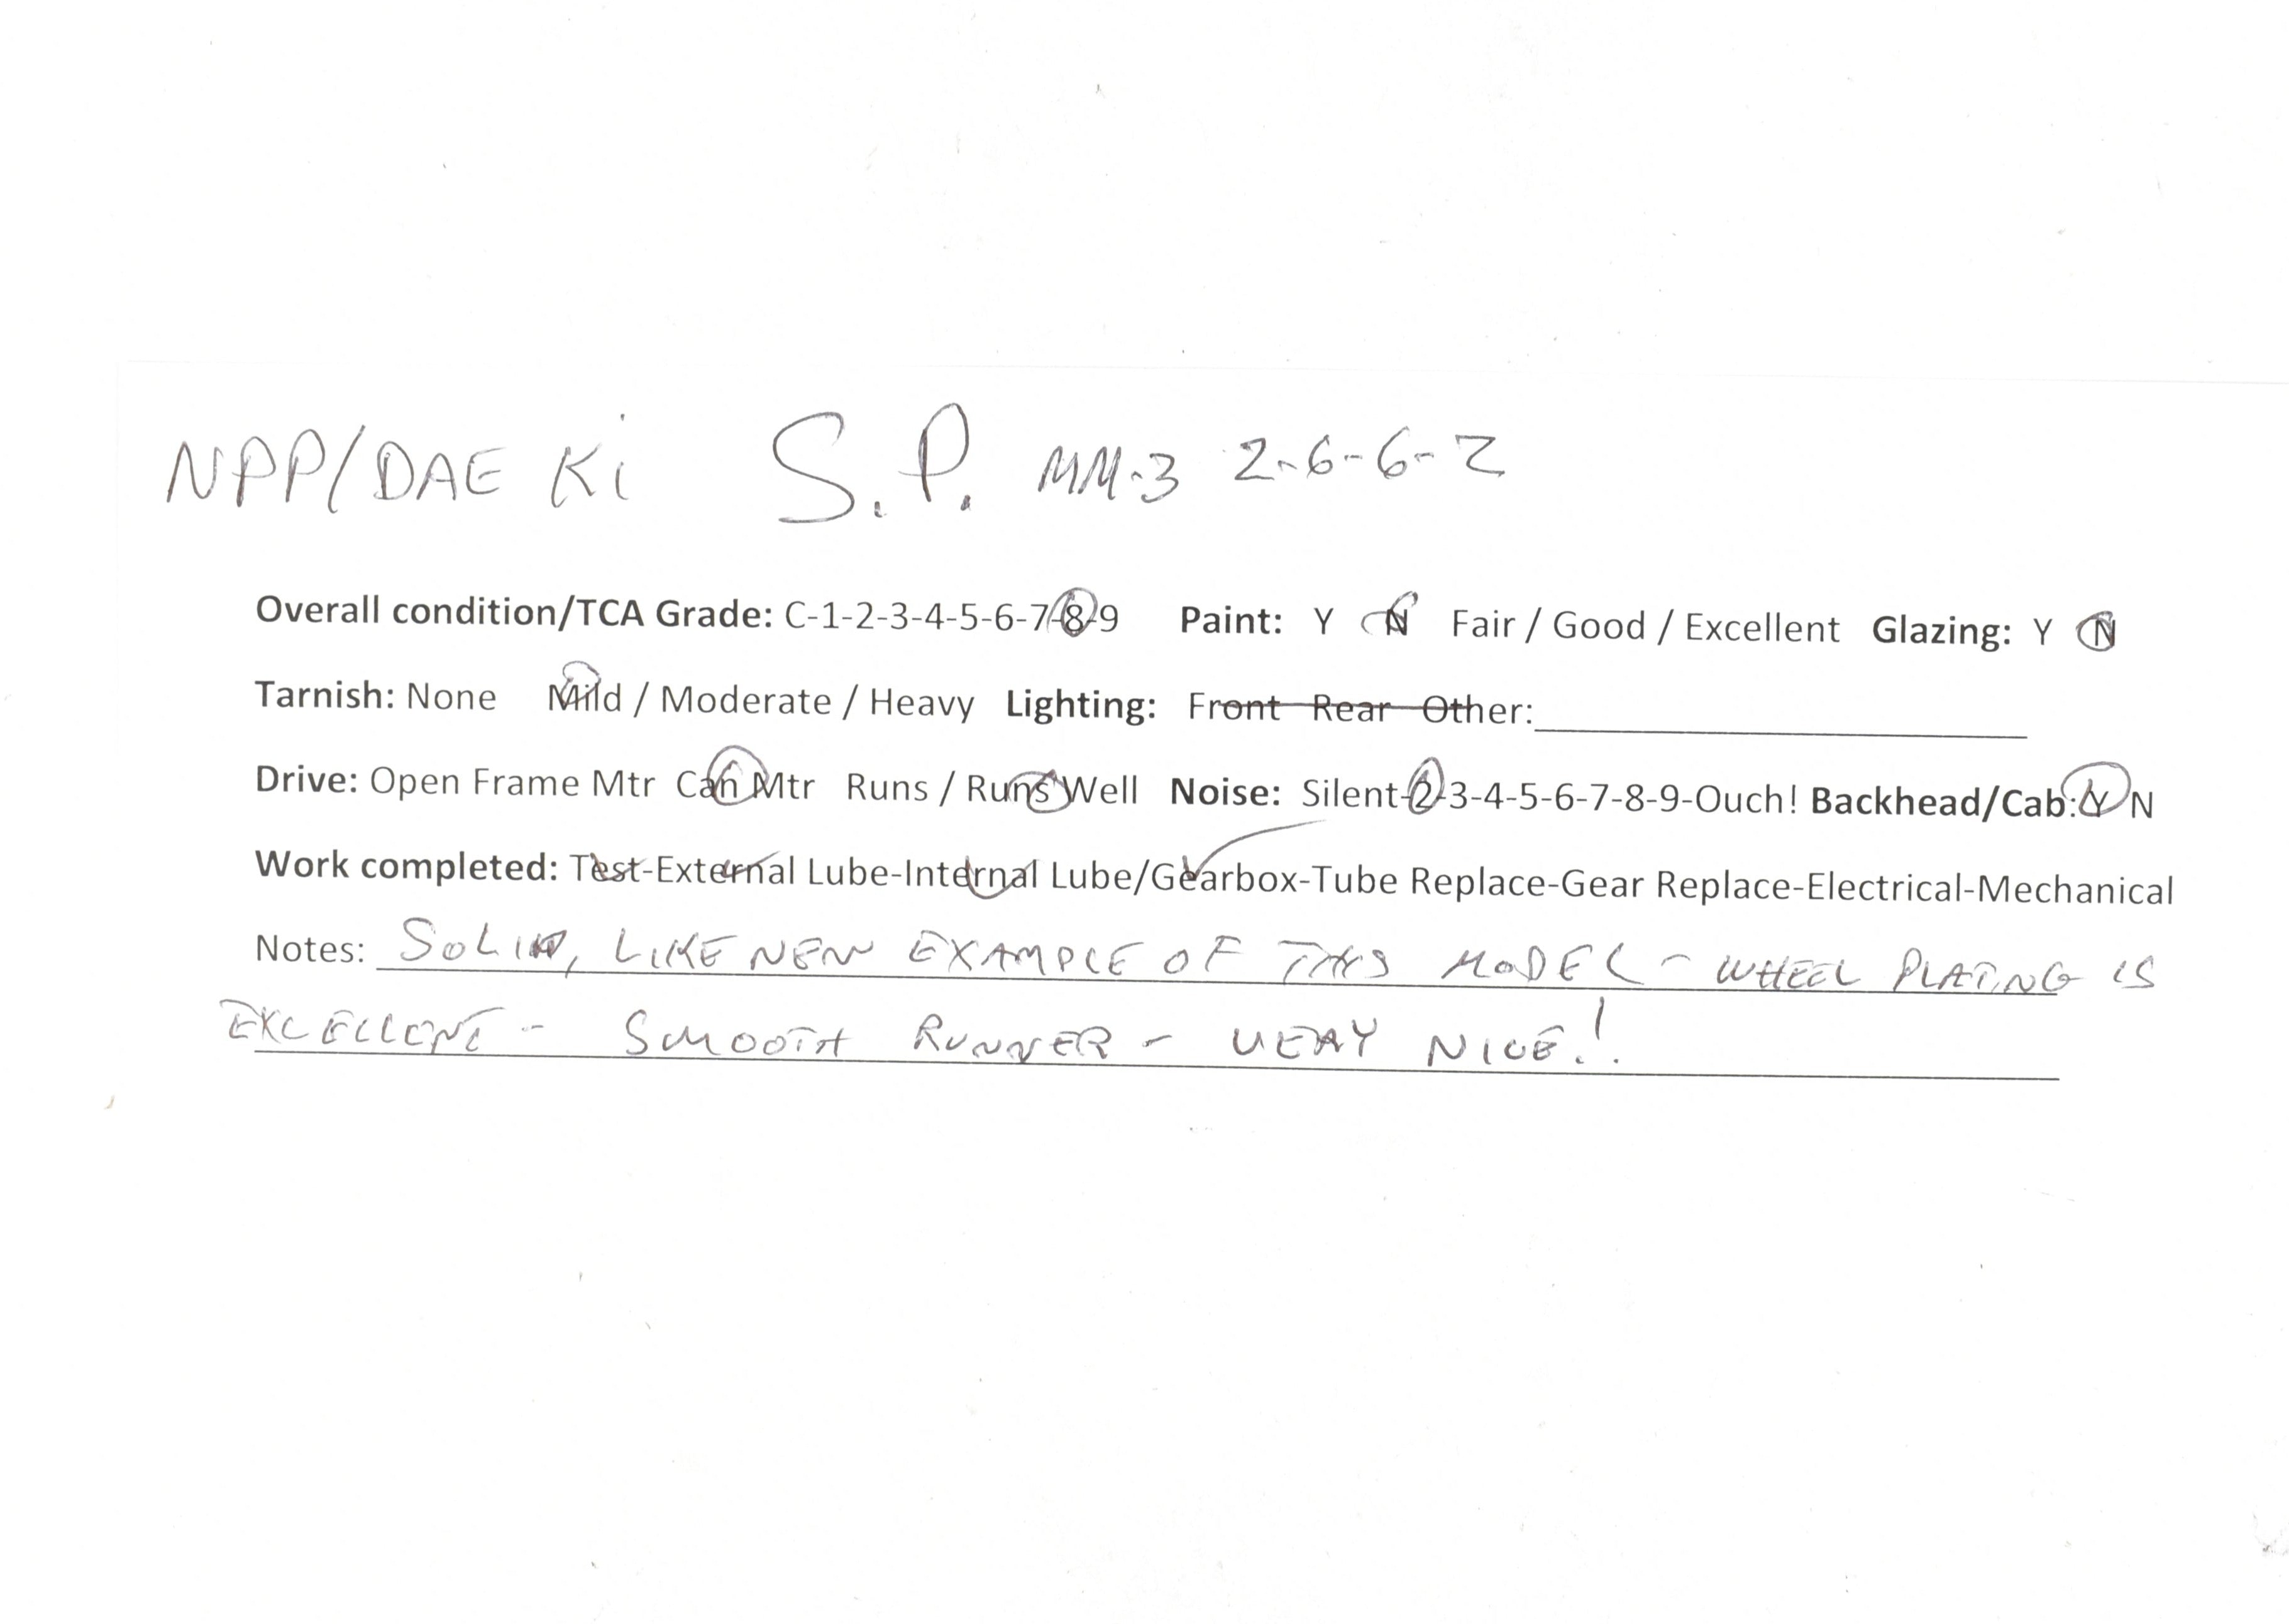 NPP/DAE Ki S.P. MM-3 2-6-6-2
Overall condition/TCA Grade: C-1-2-3-4-5-6-7-8-9 Paint: Y N Fair / Good / Excellent Glazing: Y N
Tarnish: None Mild / Moderate / Heavy Lighting: Front Rear Other:
Drive: Open Frame Mtr Can Mtr Runs / Runs Well Noise: Silent-2-3-4-5-6-7-8-9-Ouch! Backhead/Cab: Y N
Work completed: Test-External Lube-Internal Lube/Gearbox-Tube Replace-Gear Replace-Electrical-Mechanical
Notes: SOLID, LIKE NEW EXAMPLE OF THIS MODEL - WHEEL PLATING IS
EXCELLENT - SMOOTH RUNNER - VERY NICE!